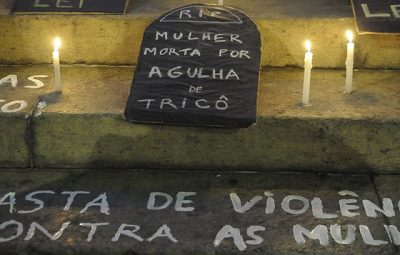 LEI
RIP
LEI
MULHER
MORTA POR
AGULHA
DE
TRICÔ
AS
TO!
ASTA DE VIOLÊN
ONTRA AS MUL